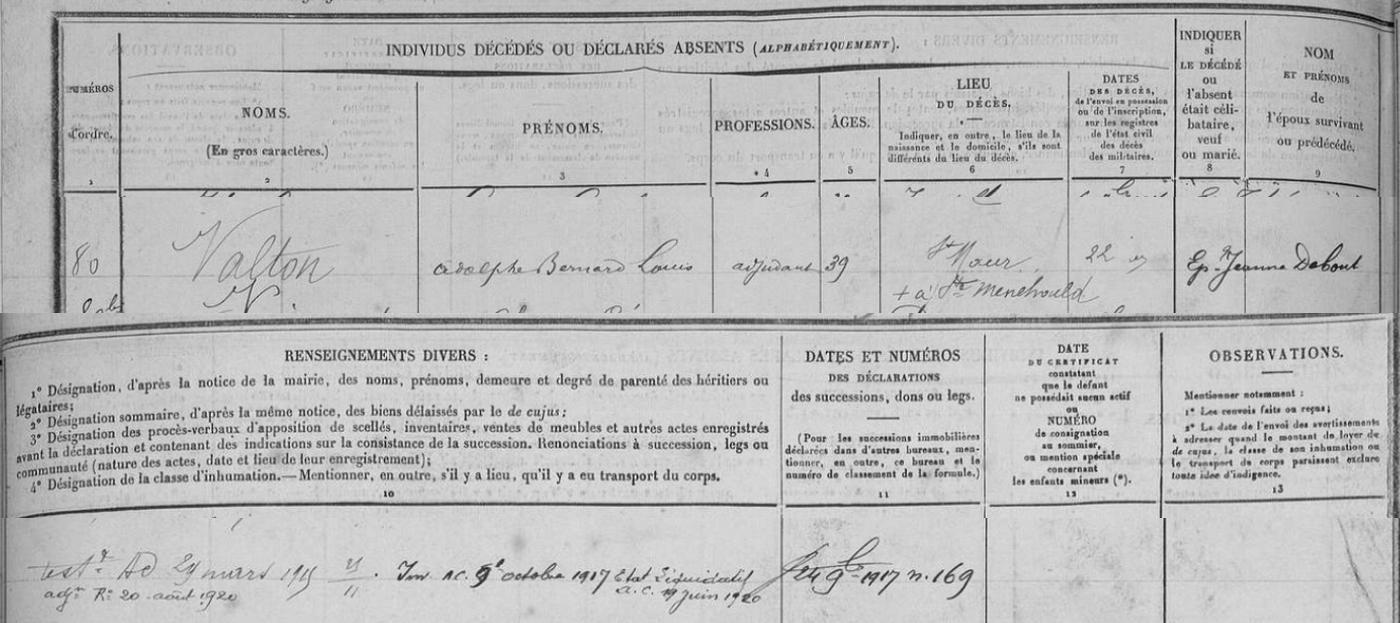 INDIVIDUS DÉCÉDÉS OU DÉCLARÉS ABSENTS (ALPHABÉTIQUEMENT).
NUMÉROS
d'ordre.
1
NOMS.
(En gros caractères.)
2
PRÉNOMS.
3
PROFESSIONS.
4
ÂGES.
5
LIEU
DU DÉCÈS.
Indiquer, en outre, le lieu de la
naissance et le domicile, s'ils sont
différents du lieu du décès.
6
DATES
DES DÉCÈS,
de l'envoi en possession
ou de l'inscription,
sur les registres
de l'état civil
des décès
des militaires.
7
INDIQUER
si
LE DÉCÉDÉ
ou
l'absent
était céli-
bataire,
veuf
ou marié.
8
NOM
ET PRÉNOMS
de
l'époux survivant
ou prédécédé.
9
80
Valton
adolphe Bernard Louis
adjudant
39
St Maur
+ à Ste Menehould
22
Ep. Jeanne Debout
RENSEIGNEMENTS DIVERS :
1° Désignation, d'après la notice de la mairie, des noms, prénoms, demeure et degré de parenté des héritiers ou
légataires;
2° Désignation sommaire, d'après la même notice, des biens délaissés par le de cujus;
3° Désignation des procès-verbaux d'apposition de scellés, inventaires, ventes de meubles et autres actes enregistrés
avant la déclaration et contenant des indications sur la consistance de la succession. Renonciations à succession, legs ou
communauté (nature des actes, date et lieu de leur enregistrement);
4° Désignation de la classe d'inhumation.—Mentionner, en outre, s'il y a lieu, qu'il y a eu transport du corps.
10
DATES ET NUMÉROS
DES DÉCLARATIONS
des successions, dons ou legs.
(Pour les successions immobilières
déclarées dans d'autres bureaux, men-
tionner, en outre, ce bureau et le
numéro de classement de la formule.)
11
DATE
DU CERTIFICAT
constatant
que le défunt
ne possédait aucun actif
ou
NUMÉRO
de consignation
au sommier,
ou mention spéciale
concernant
les enfants mineurs (*).
12
OBSERVATIONS.
Mentionner notamment :
1° Les renvois faits ou reçus;
2° La date de l'envoi des avertissements
à adresser quand le montant du loyer de
de cujus, la classe de son inhumation ou
le transport de corps paraissent exclure
toute idée d'indigence.
13
testt AD 29 mars 1915 . Inv AC. 9 octobre 1917 Etat Liquidatif
adjon Re 20 août 1920 a.c. 19 juin 1920
9bre 1917 n. 169